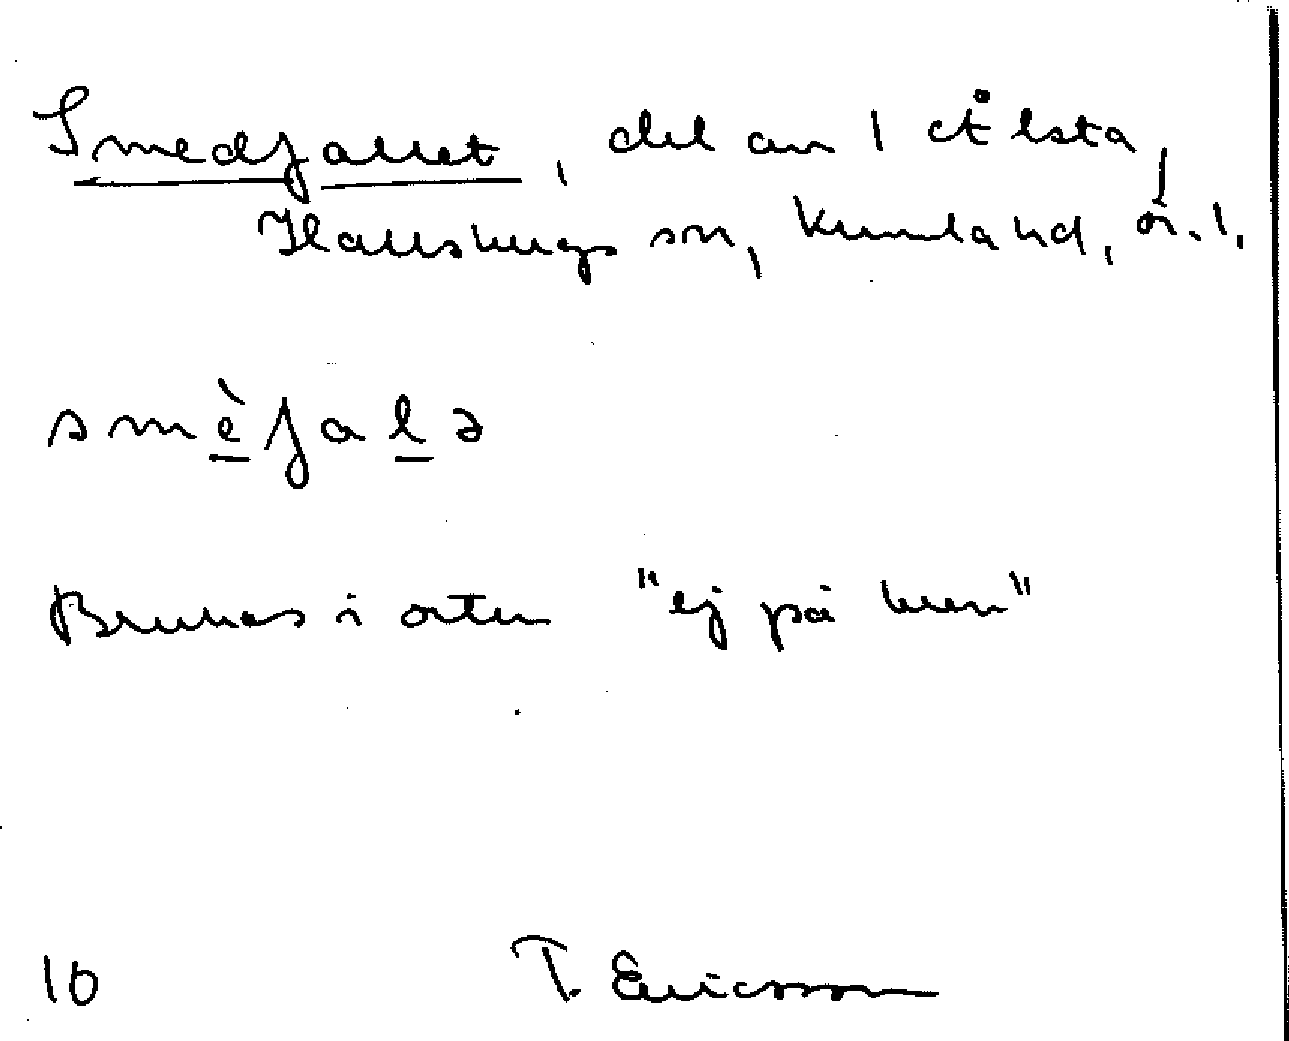 Smedfallet, del av 1 Ålsta,
Hallsbergs sn, Kumla hd, Ö.l.
smèfalə
Brukas i orten "ej på brev"
10 T. Ericsson